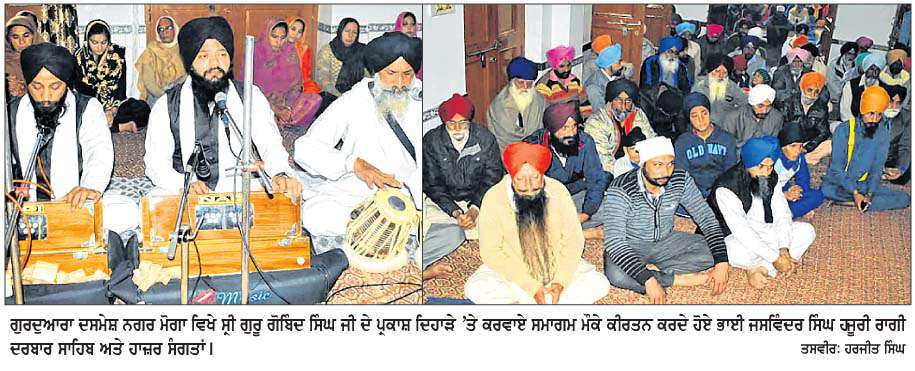 OLD NAVY
Music
ਗੁਰਦੁਆਰਾ ਦਸਮੇਸ਼ ਨਗਰ ਮੋਗਾ ਵਿਖੇ ਸ੍ਰੀ ਗੁਰੂ ਗੋਬਿੰਦ ਸਿੰਘ ਜੀ ਦੇ ਪ੍ਰਕਾਸ਼ ਦਿਹਾੜੇ ’ਤੇ ਕਰਵਾਏ ਸਮਾਗਮ ਮੌਕੇ ਕੀਰਤਨ ਕਰਦੇ ਹੋਏ ਭਾਈ ਜਸਵਿੰਦਰ ਸਿੰਘ ਹਜ਼ੂਰੀ ਰਾਗੀ
ਦਰਬਾਰ ਸਾਹਿਬ ਅਤੇ ਹਾਜ਼ਰ ਸੰਗਤਾਂ। ਤਸਵੀਰ: ਹਰਜੀਤ ਸਿੰਘ